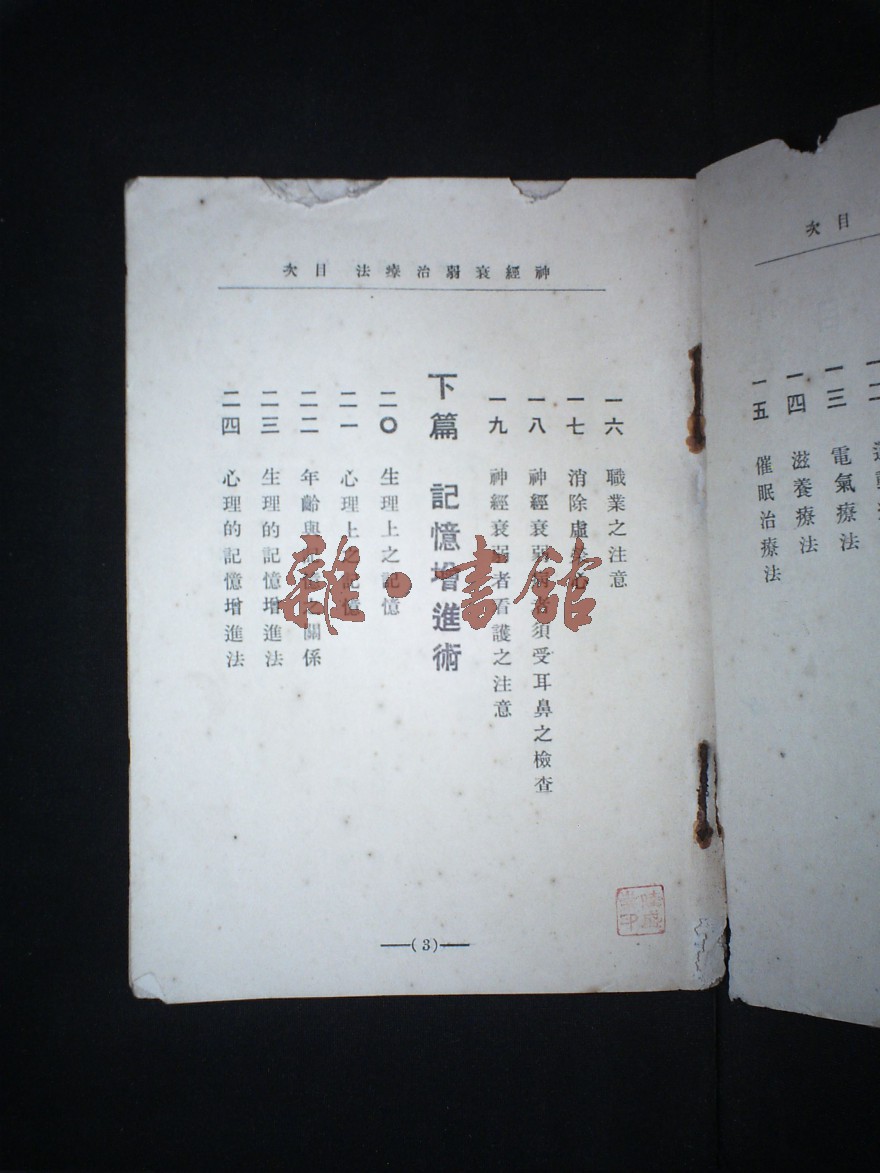 目次
一三 電氣療法
一四 滋養療法
一五 催眠治療法
神經衰弱治療法 目次
一六 職業之注意
一七 消除虛心
一八 神經衰弱者須受耳鼻之檢查
一九 神經衰弱者看護之注意
下篇 記憶增進術
二〇 生理上之記憶
二一 心理上之記憶
二二 年齡與記憶之關係
二三 生理的記憶增進法
二四 心理的記憶增進法
(3)
雜·書館